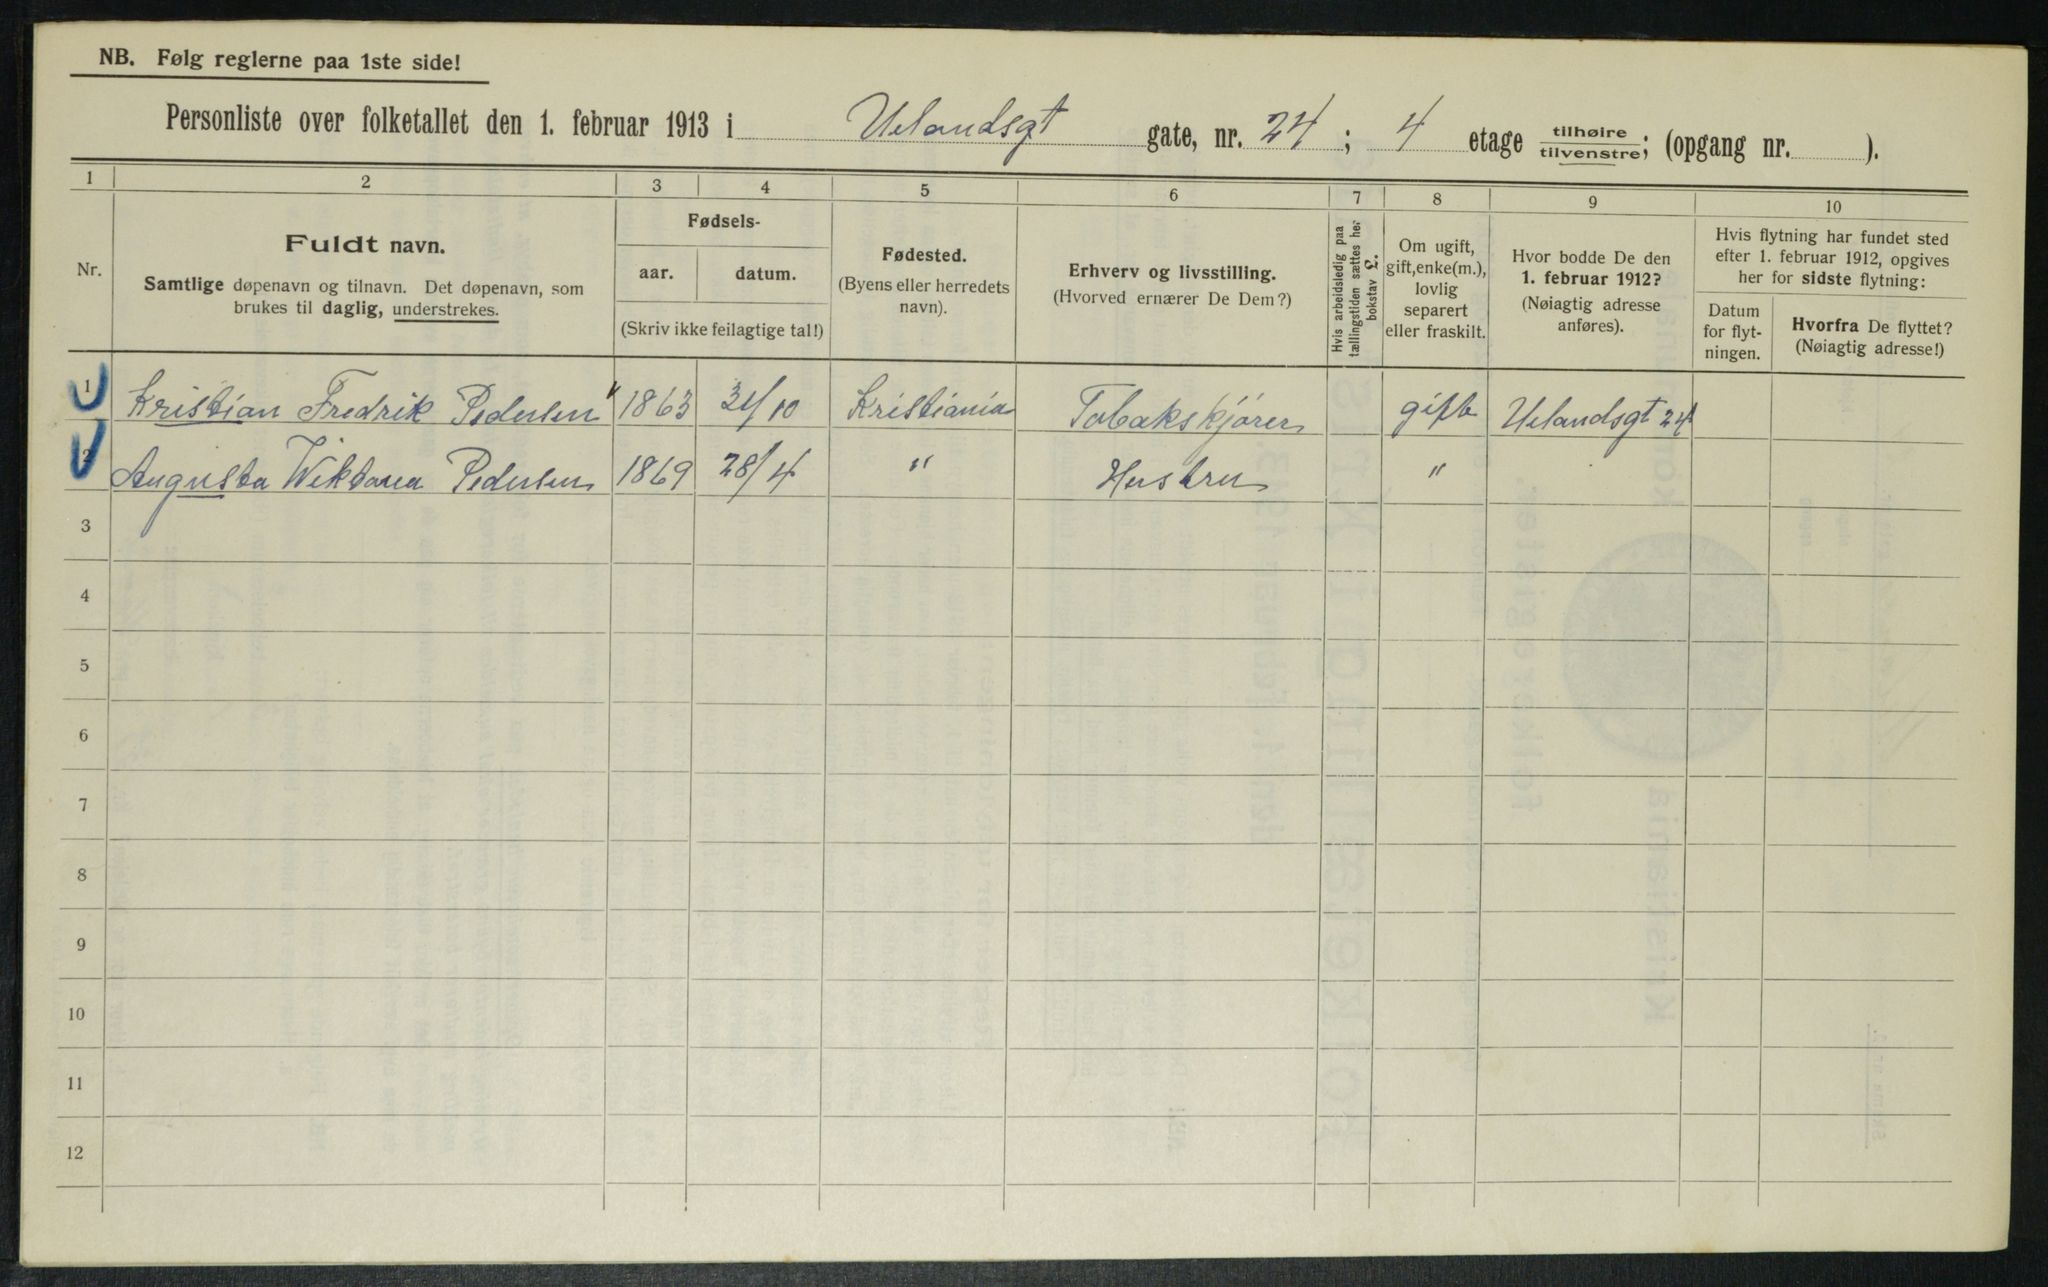 NB. Følg reglerne paa 1ste side!
Personliste over folketallet den 1. februar 1913 i Uelandsgt gate, nr. 24 ; 4 etage tilhøire / tilvenstre; (opgang nr. ).
1 2 3 4 5 6 7 8 9 10
Nr.
Fuldt navn.
Samtlige døpenavn og tilnavn. Det døpenavn, som
brukes til daglig, understrekes.
Fødsels-
aar. datum.
(Skriv ikke feilagtige tal!)
Fødested.
(Byens eller herredets
navn).
Erhverv og livsstilling.
(Hvorved ernærer De Dem?)
Hvis arbeidsledig paa
tællingstiden sættes her
bokstav L.
Om ugift,
gift, enke(m.),
lovlig
separert
eller fraskilt.
Hvor bodde De den
1. februar 1912?
(Nøiagtig adresse
anføres).
Hvis flytning har fundet sted
efter 1. februar 1912, opgives
her for sidste flytning:
Datum
for flyt-
ningen.
Hvorfra De flyttet?
(Nøiagtig adresse!)
1 Kristian Fredrik Pedersen 1863 31/10 Kristiania Tobakskjører gift Uelandsgt 24
2 Augusta Wiktoria Pedersen 1869 28/4 " Hustru "
3
4
5
6
7
8
9
10
11
12